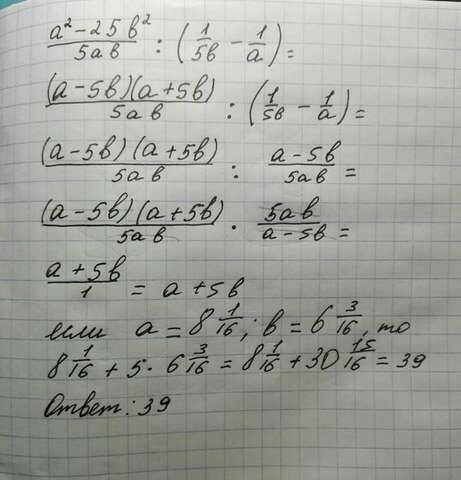 (a² - 25b²)/(5ab) : (1/(5b) - 1/a) =
((a-5b)(a+5b))/(5ab) : (1/(5b) - 1/a) =
((a-5b)(a+5b))/(5ab) : (a-5b)/(5ab) =
((a-5b)(a+5b))/(5ab) · (5ab)/(a-5b) =
(a+5b)/1 = a+5b
если a = 8 1/16; b = 6 3/16, то
8 1/16 + 5 · 6 3/16 = 8 1/16 + 30 15/16 = 39
Ответ: 39